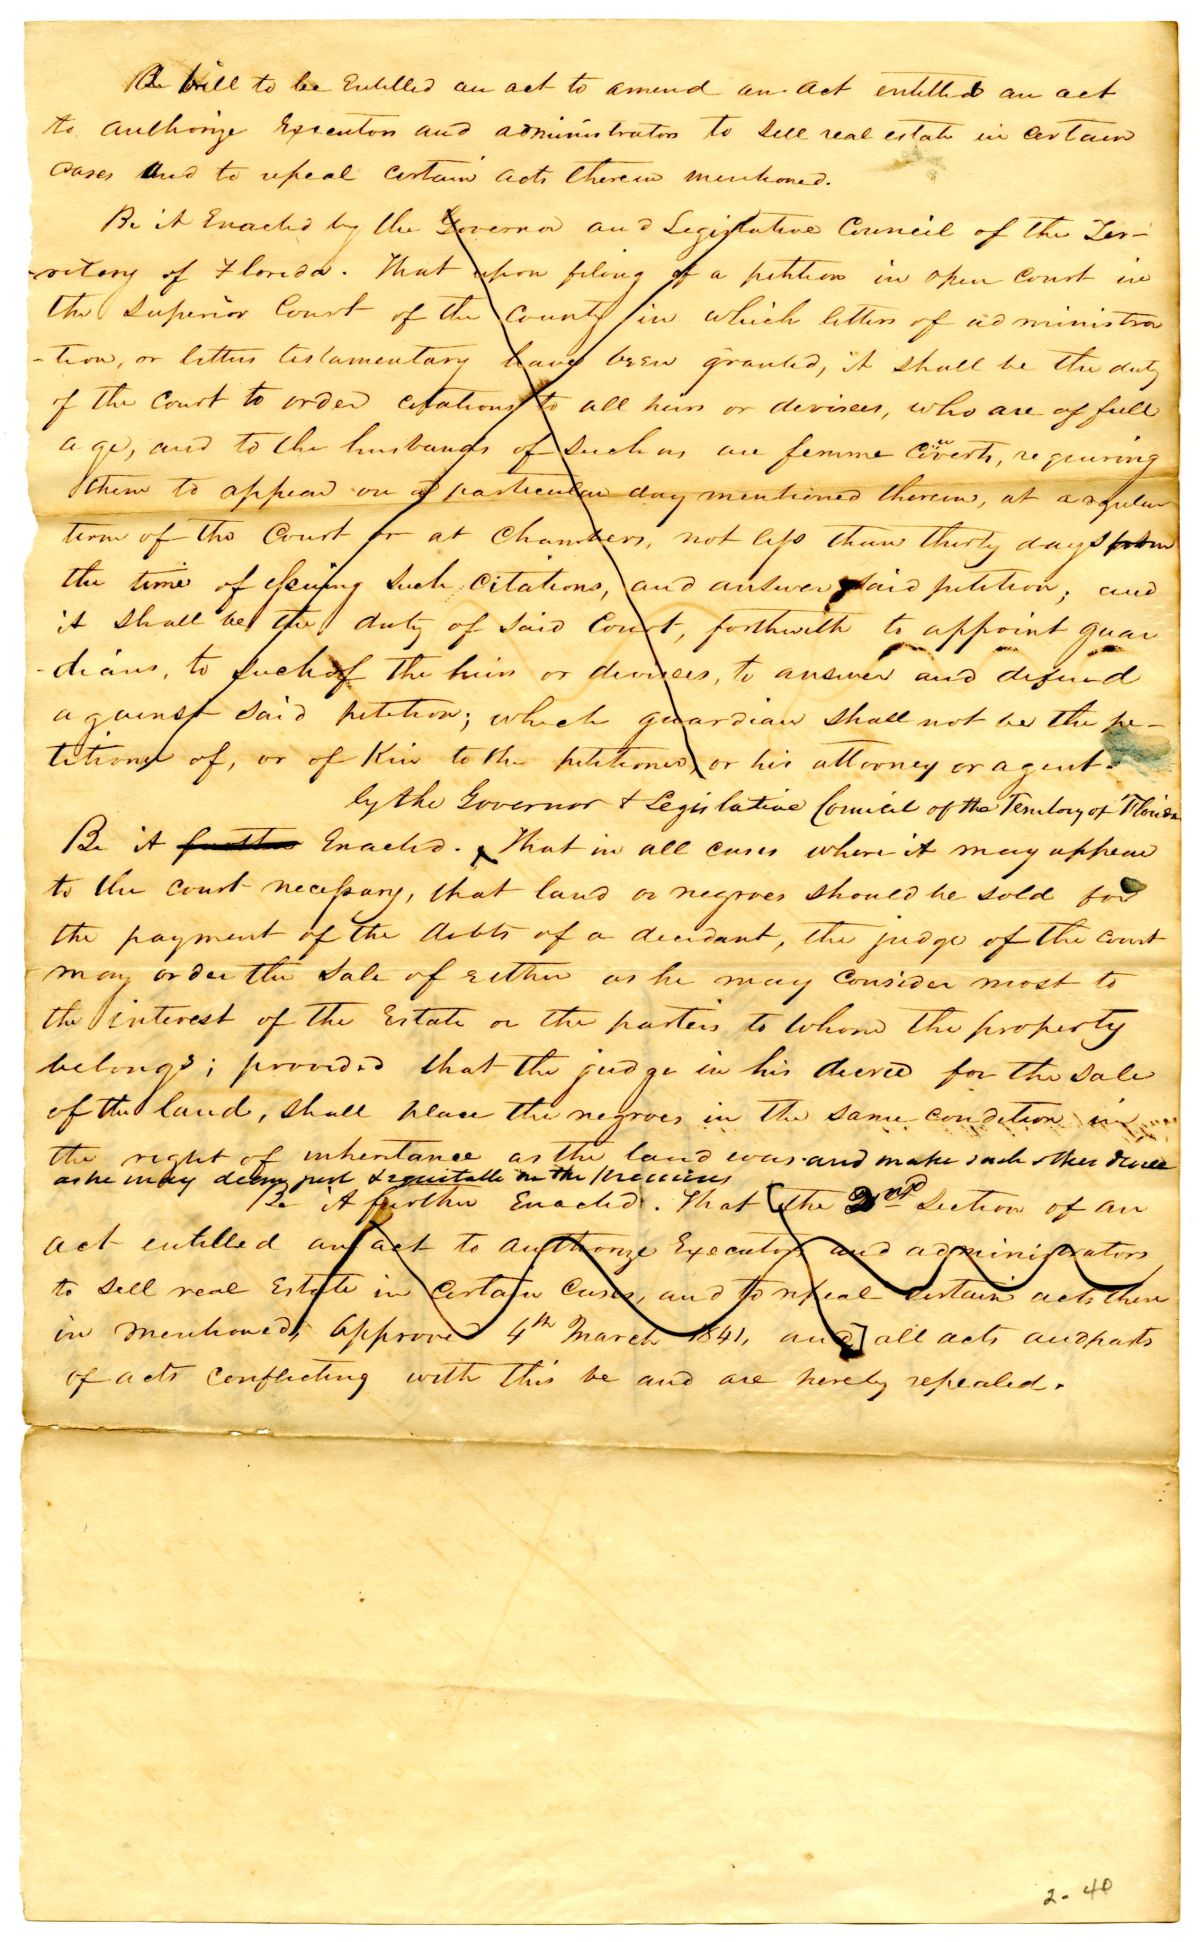 A bill to be Entitled an act to amend an Act entitled an act
to authorize Executors and administrators to sell real estate in certain
cases And to repeal certain acts therein mentioned.
Be it Enacted by the Governor and Legislative Council of the Ter-
-ritory of Florida. That upon filing of a petition in open court in
the Superior Court of the County in which letters of administra
-tion, or letters testamentary have been granted, it shall be the duty
of the court to order citations to all heirs or devisees, who are of full
age, and to the husbands of such as are femme coverts, requiring
them to appear on a particular day mentioned therein, at a regular
term of the Court or at Chambers, not less than thirty days from
the time of issuing such citations, and answer said petition; and
it shall be the duty of said Court, forthwith to appoint guar
-dians, to such of the heirs or devisees, to answer and defend
against said petition; which guardian shall not be the pe-
titioner of, or of Kin to the petitioner, or his attorney or agent.
by the Governor & Legislative Council of the Territory of Florida
Be it further Enacted. That in all cases where it may appear
to the court necessary, that land or negroes should be sold for
the payment of the debts of a decedant, the judge of the court
may order the sale of either as he may consider most to
the interest of the Estate or the parties to whom the property
belongs; provided that the judge in his decree for the sale
of the land, shall place the negroes in the same condition in
the right of inheritance as the land was and make such other decree
as he may deem just & equitable in the premises
Be it further Enacted. That [the 2nd Section of an
act entitled an act to authorize Executors and administrators
to sell real Estate in certain cases, and to repeal certain acts there
in mentioned, approved 4th March 1841, and] all acts and parts
of acts conflicting with this be and are hereby repealed.
2-40